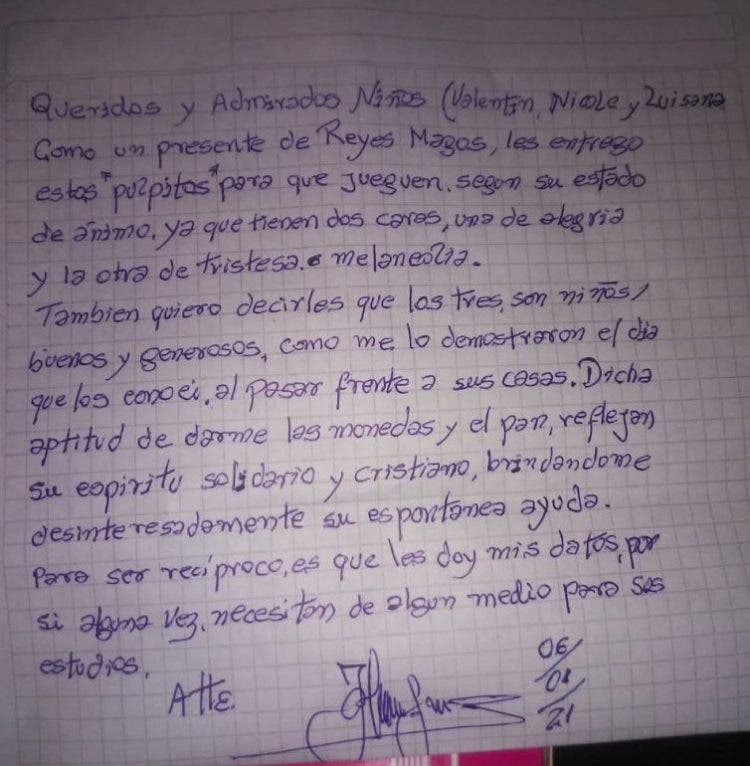 Queridos y Admirados Niños (Valentin, Nicole y Luisana
Como un presente de Reyes Magos, les entrego
estos "pulpitos" para que jueguen, segun su estado
de ánimo, ya que tienen dos caras, una de alegria
y la otra de tristesa o melancolia.
Tambien quiero decirles que los tres, son niños,
buenos y generosos, como me lo demostraron el dia
que los conoci, al pasar frente a sus casas. Dicha
aptitud de darme las monedas y el pan, reflejan
su espiritu solidario y cristiano, brindandome
desinteresadamente su espontanea ayuda.
Para ser recíproco, es que les doy mis datos, por
si alguna vez, necesitan de algun medio para sus
estudios.
Atte.
06/
01/
21